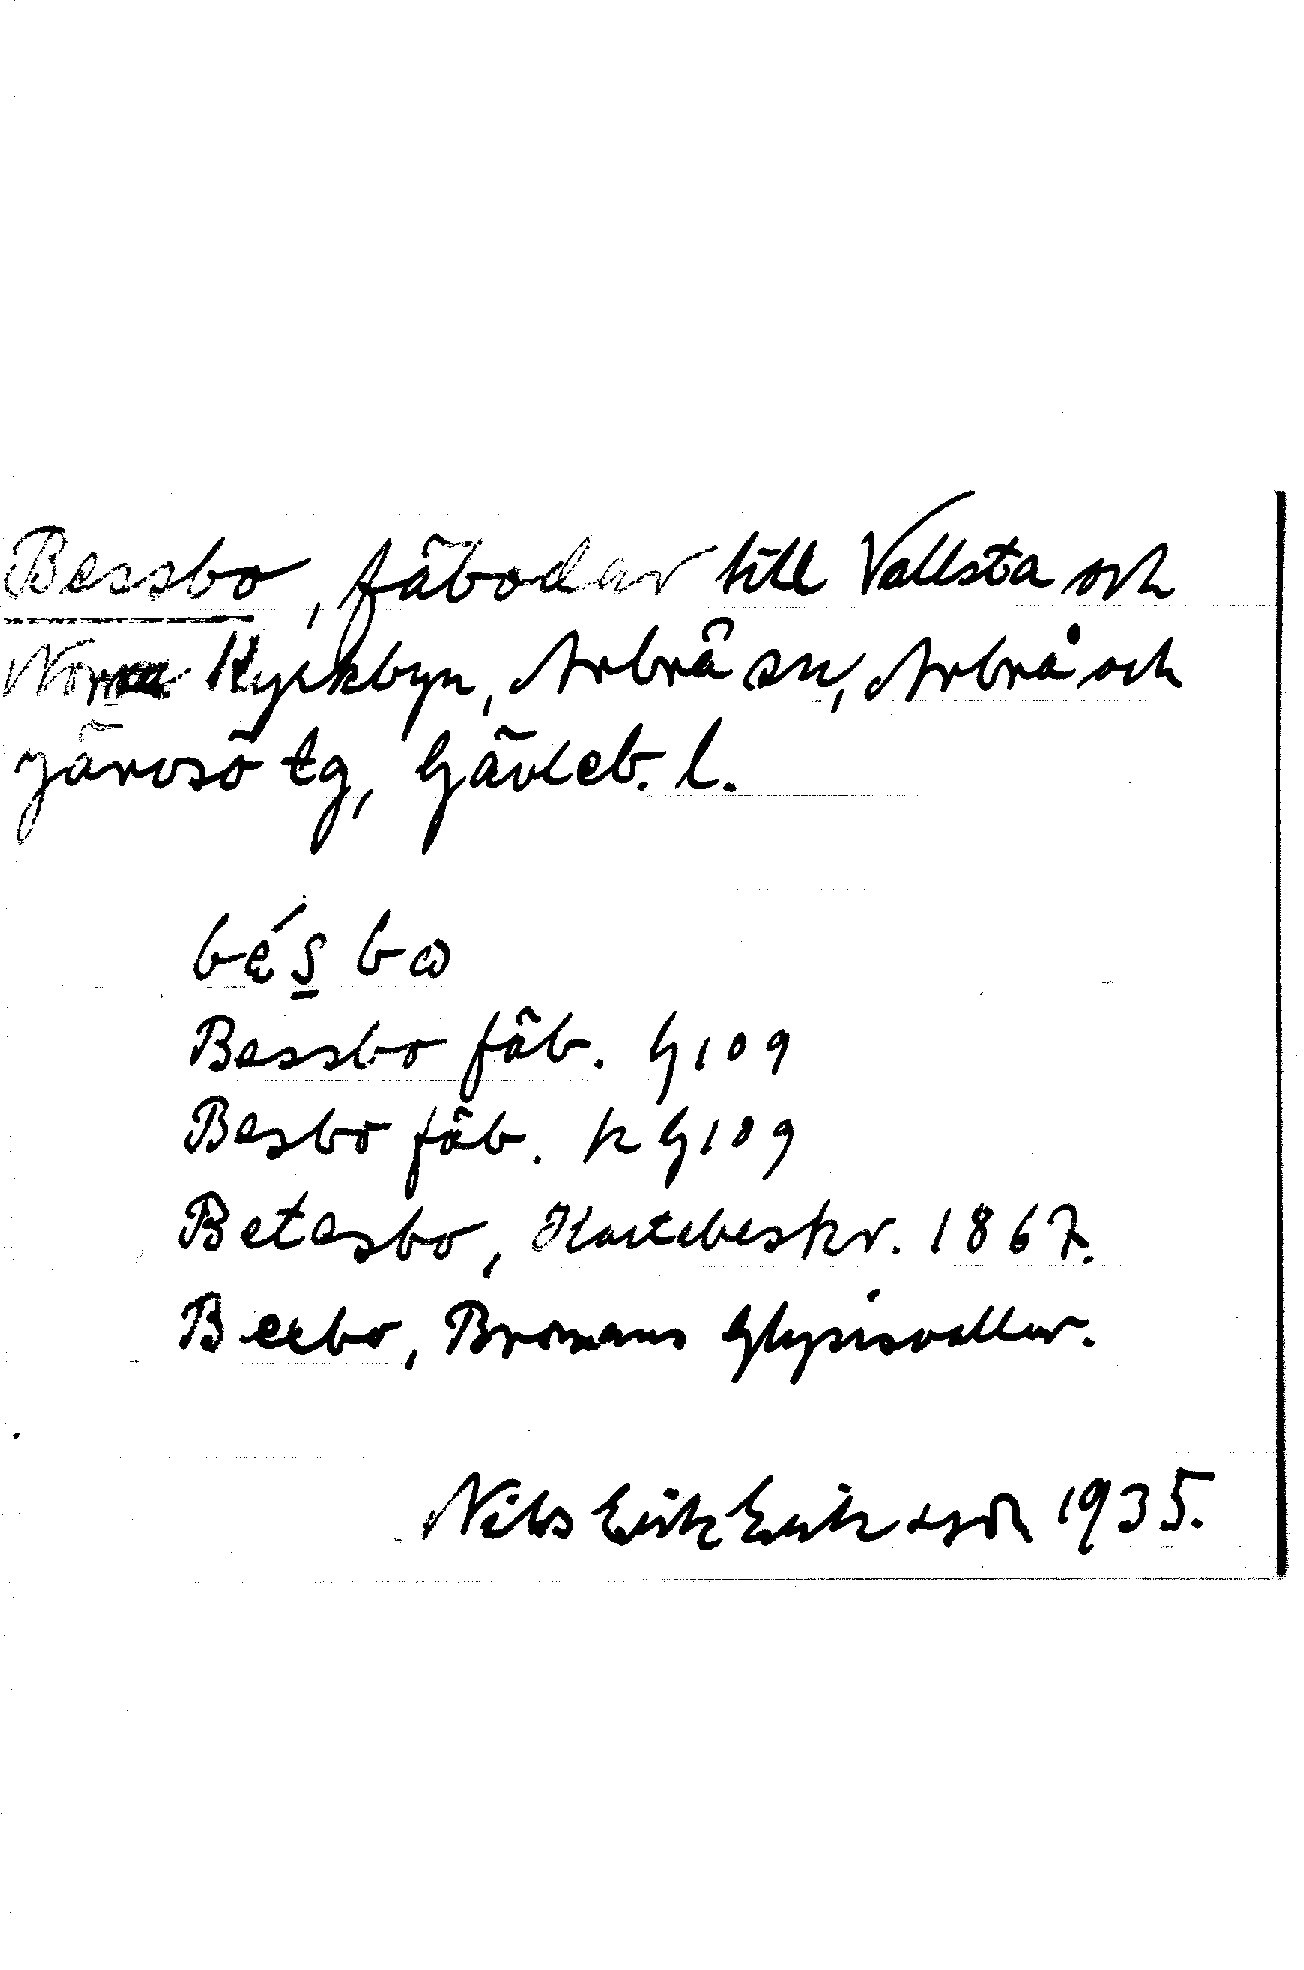 Bessbo, fäbodar till Vallsta och
Norra Kyrkbyn, Arbrå sn, Arbrå och
Järvsö tg, Gävleb. l.
bés̲bω
Bessbo fäb. G109
Besbo fäb. K G109
Betesbo, Kartebeskr. 1867.
Beebo, Bromans Glysisvallur.
Nils Erik Eriksson 1935.